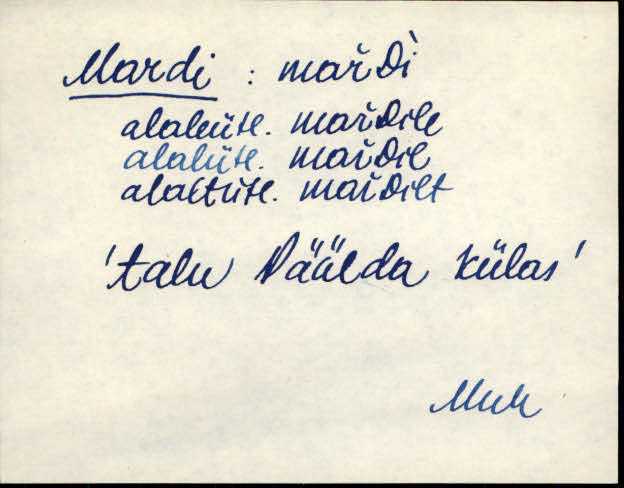 Mardi : mařDì
alaleütl. mařDile
alalütl. mařDil
alaltütl. mařDilt
'talu Päälda külas'
Muh